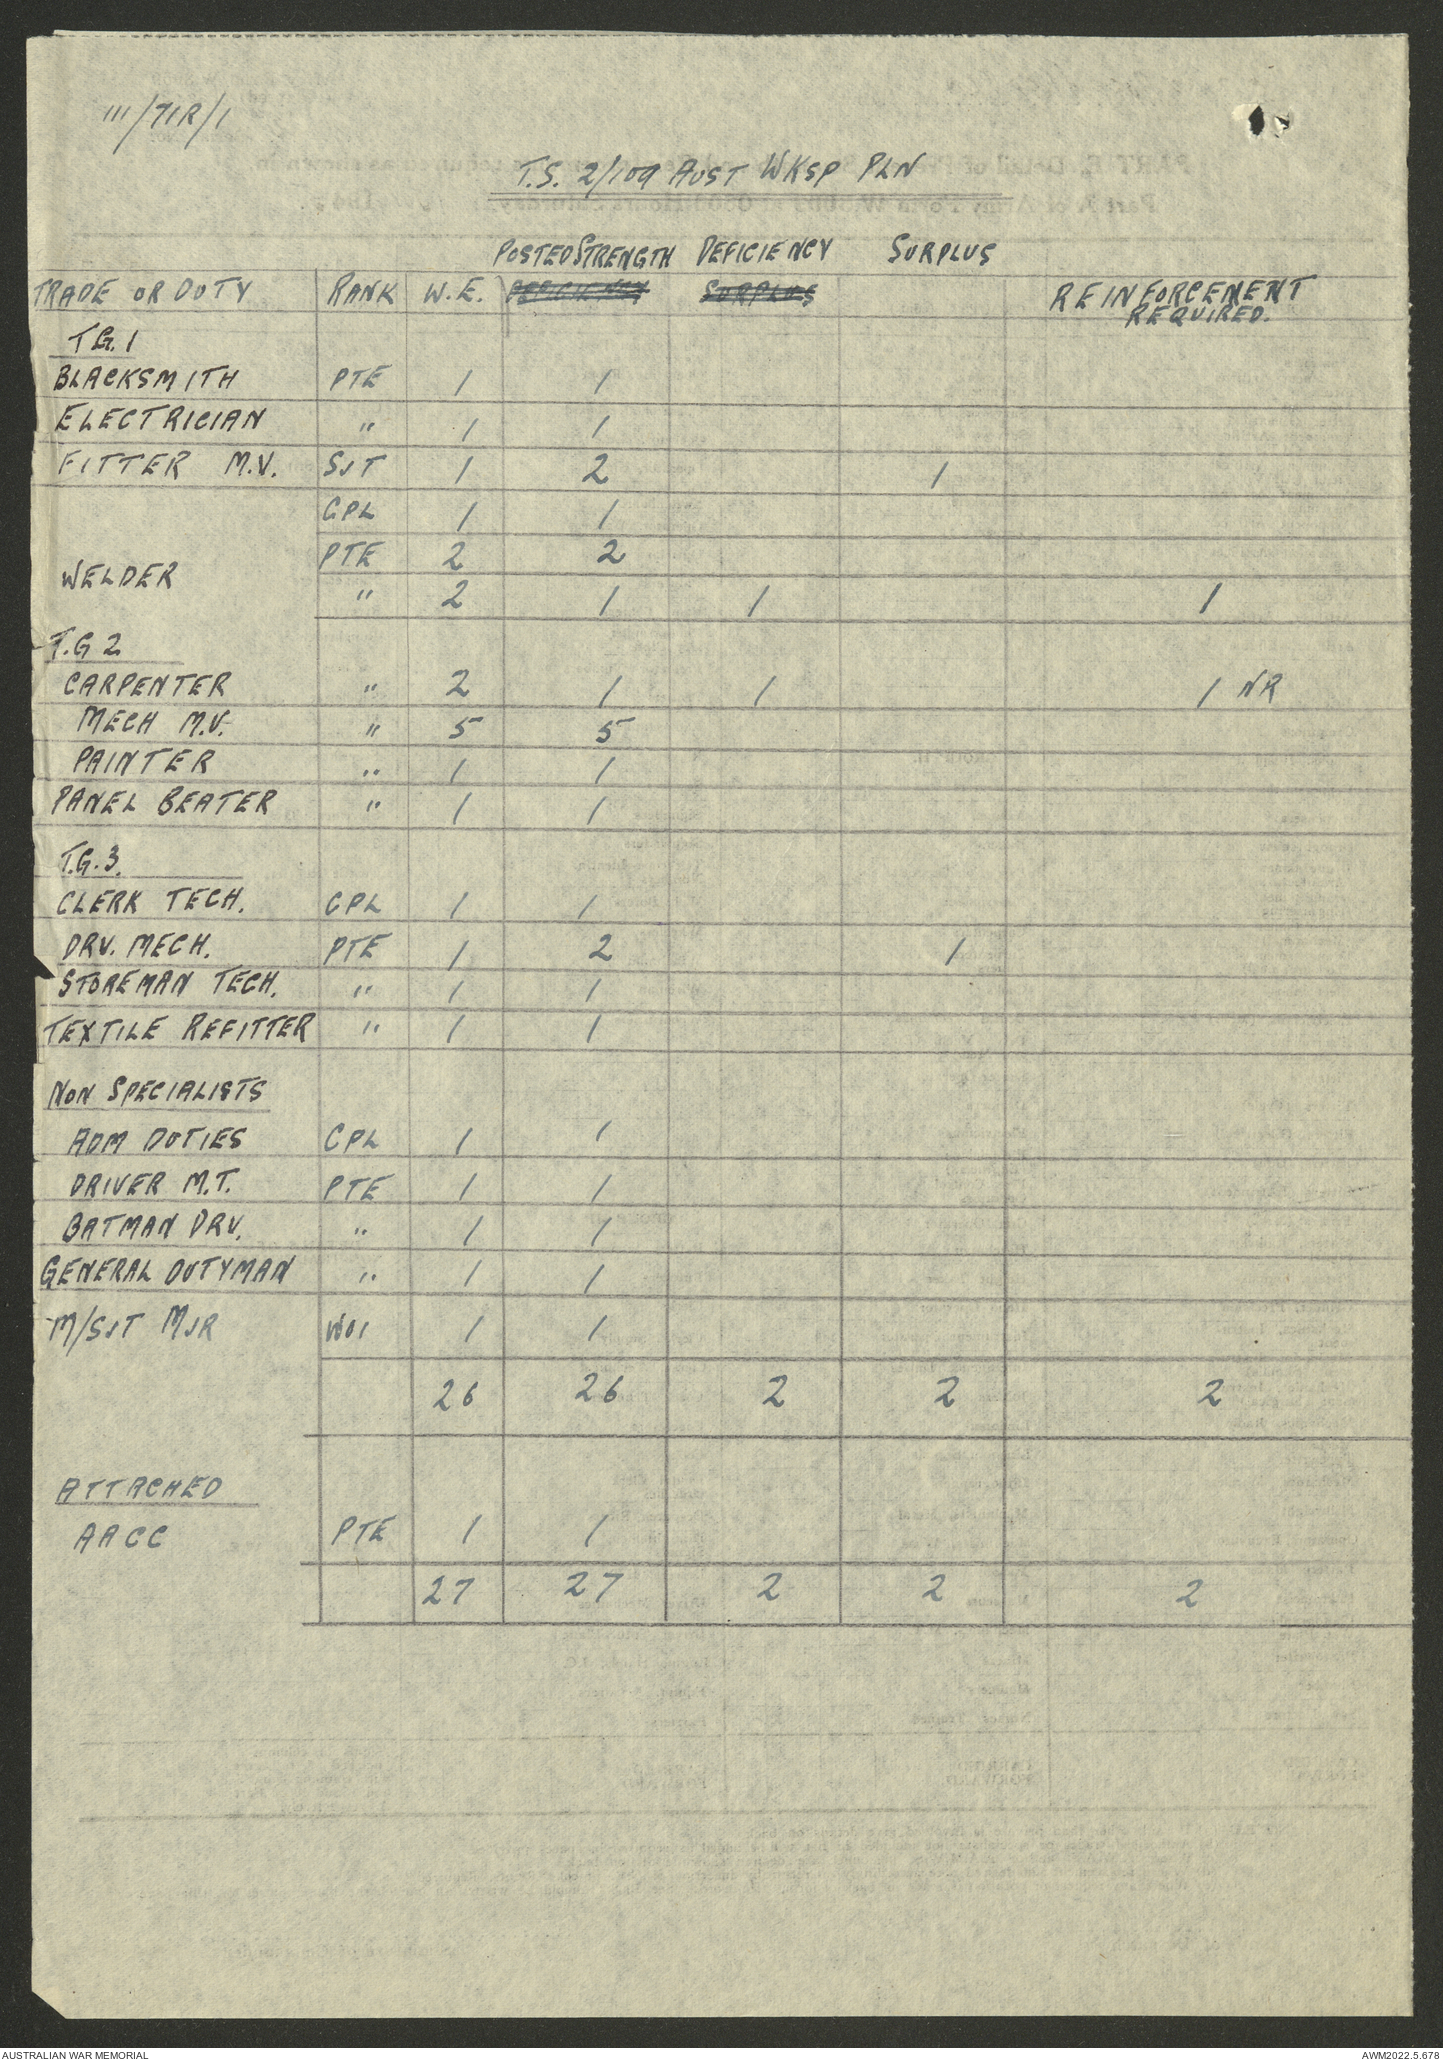 111/71R/1
T.S. 2/109 AUST WKSP PLN
POSTED STRENGTH DEFICIENCY SURPLUS
TRADE OR DUTY RANK W.E. DEFICIENCY SURPLUS REINFORCEMENT
REQUIRED.
T.G. 1
BLACKSMITH PTE 1 1
ELECTRICIAN " 1 1
FITTER M.V. SJT 1 2 1
CPL 1 1
PTE 2 2
WELDER " 2 1 1 1
T.G 2
CARPENTER " 2 1 1 1 NR
MECH M.V. " 5 5
PAINTER " 1 1
PANEL BEATER " 1 1
T.G.3.
CLERK TECH. CPL 1 1
DRV. MECH. PTE 1 2 1
STOREMAN TECH. " 1 1
TEXTILE REFITTER " 1 1
NON SPECIALISTS
ADM DUTIES CPL 1 1
DRIVER M.T. PTE 1 1
BATMAN DRV. " 1 1
GENERAL DUTYMAN " 1 1
M/SJT MJR WO1 1 1
26 26 2 2 2
ATTACHED
AACC PTE 1 1
27 27 2 2 2
AUSTRALIAN WAR MEMORIAL AWM2022.5.678